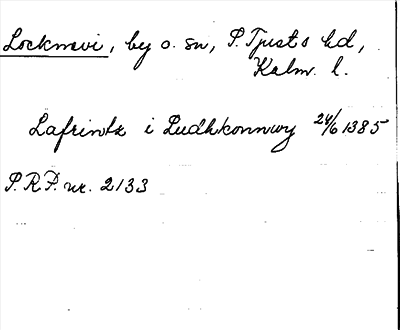 Locknevi, by o. sn, S. Tjusts hd,
Kalm. l.
Lafrintz i Ludhkonnwy 24/6 1385
S.R.P. nr. 2133